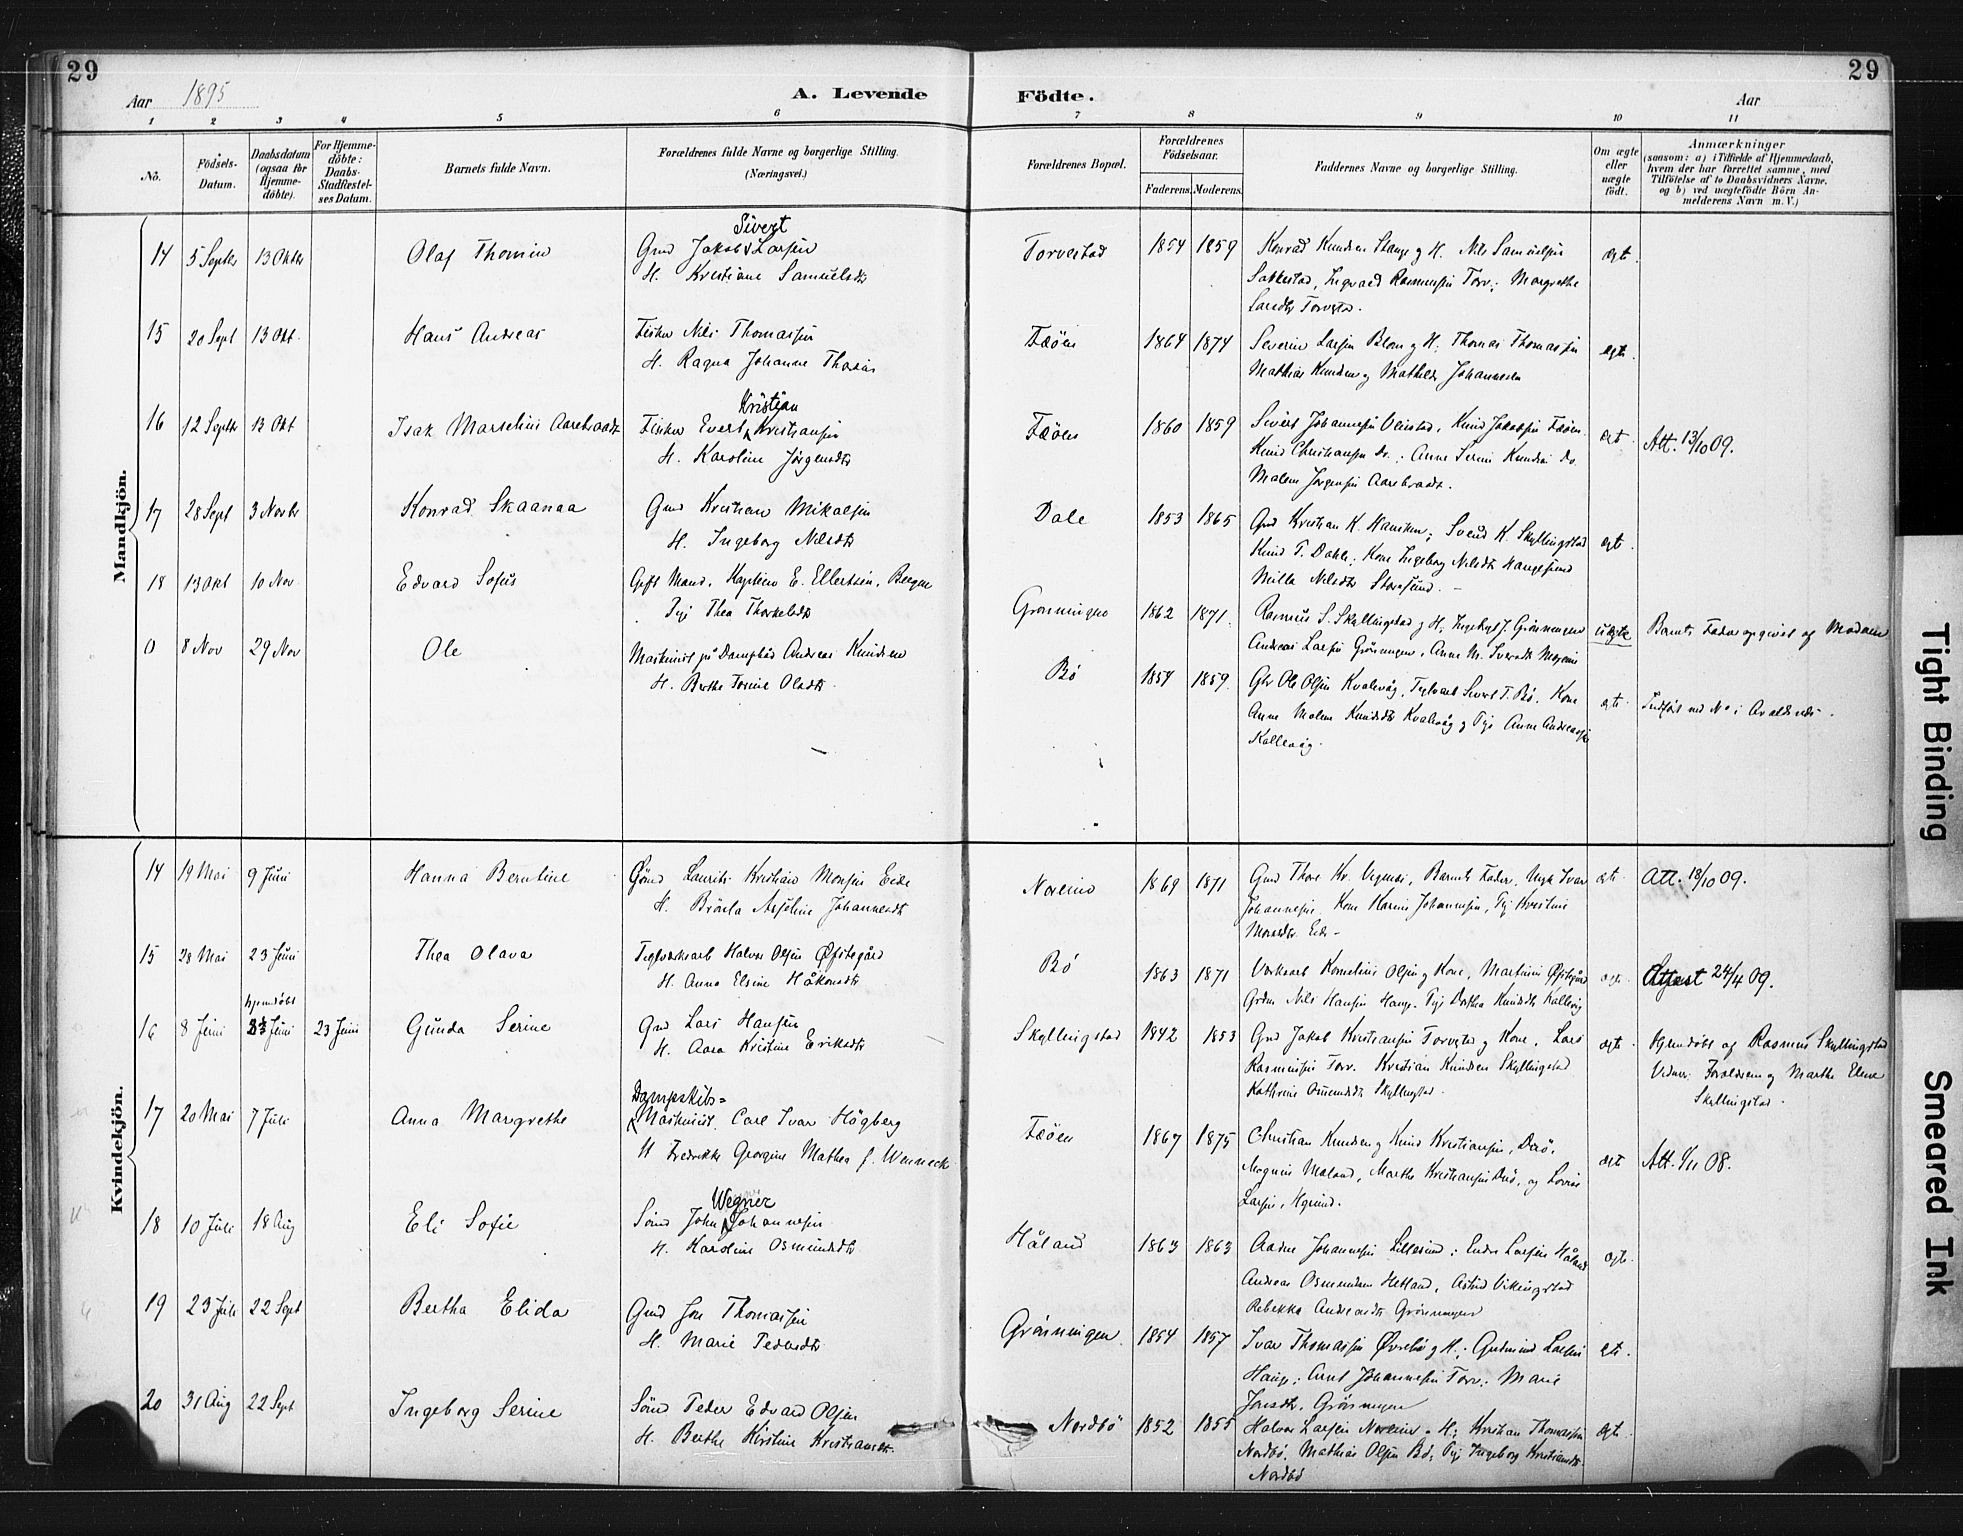 29
29
Aar 1895
A. Levende
Födte.
Aar
1 2 3 4 5 6 7 8 9 10 11
No.
Födsels-Datum.
Daabsdatum (ogsaa for Hjemme-döbte).
For Hjemme-döbte: Daabs-Stadfæstel-ses Datum.
Barnets fulde Navn.
Forældrenes fulde Navne og borgerlige Stilling. (Næringsvei.)
Forældrenes Bopæl.
Forældrenes Födselsaar.
Faderens. Moderens.
Faddernes Navne og borgerlige Stilling.
Om ægte eller uægte födt.
Anmærkninger
(saasom: a) i Tilfælde af Hjemmedaab,
hvem der har forrettet samme, med
Tilföielse af to Daabsvidners Navne,
og b) ved uægtefödte Börn An-
melderens Navn m. V.)
Mandkjön.
14 5 Septbr 13 Oktbr Olaf Thomin
Sivert
Gmd Jakob Larsen
H. Kristiane Samuelsdtr
Torvestad 1854 1859
Konrad Knudsen Stange g H. Nils Samuelsen
Sakkestad, Ingvald Rasmussen Torv; Margrethe
Larsdtr Torvestd.
ægt.
15 20 Sept 13 Okt. Hans Andreas
Fisker Nils Thomassen
H. Ragna Johanne
Fæöen 1864 1874
Severin Larsen Blom g H; Thomas Thomassen
Mathias Knudsen g Mathilde Johannesen
ægte.
16 12 Septbr 13 Okt Isak Marselius Aarebraadt
Kristian
Fisker Evert Kristiansen
H. Karoline Jörgensdtr
Fæöen 1860 1859
Sivert Johannessen, Knud Jakobsen Fæöen.
Knud Christiansen do.; Anne Serine Knudsen do.
Malene Jörgensen Aarebraadt.
ægt Att. 13/10 09.
17 28 Sept 3 Novbr Konrad Skaanaa
Gmd Kristian Mikalsen
H. Ingeborg Nilsdtr
Dale 1853 1865
Gmd Kristian K. Hansken; Svend K. Skyllingstad
Knud T. Dahle; Kone Ingeborg Nilsdtr Haugesund
Milla Nilsdtr Storesund.
ægt.
18 13 Okt 10 Nov. Edvard Sofus
Gift Mand, Kaptein E. Ellertsen, Bergen
Pige Thea Thorkelsdtr
Grönningen 1862 1871.
Rasmus S. Skyllingstad g H; J. Grönningen
Andreas Larsen Grönningen, Anne M. Sivertsdtr
uægte Barnets Fader opgivet af Moderen
0 8 Nov 29 Nov Ole
Maskinist på Dampbåd Andreas Knudsen
H. Berthe Torine Olsdtr.
Bö 1854 1859.
Gbr Ole Olsen Kvalevåg, Sivert T. Bö. Kone
Anne Malene Knudsdtr Kvalevåg g Pige Anne Andreassen
Kallevåg.
ægt. Indført ved No i Avaldsnæs.
Kvindekjön.
14 19 Mai 9 Juni Hanna Berntine
Gmd Laurits Kristian Monsen Eide
H. Johannesdtr
Noreim 1869 1871
Gmd Thore Kr., Barnets Fader, Ungk Ivar
Johannessen, Kone Karine Johannessen, Pg Kristine
Monsdtr Eide
ægt. Att. 18/10 09.
15 28 Mai 23 Juni Thea Olava
Teglverksarb Halvor Olsen Øfstegård
H. Anna Elsine Håkonsdtr
Bö 1863 1871
Verksarb Kornelius Olsen g Kone, Martinius Øfstegård
Grdm Nils Hansen Hauge. Pige Dorthea Knudsdtr Kallevåg
ægt. Attest 24/4 09.
16 8 Juni hjemdöbt Juni 23 Juni Gunda Serine
Gmd Lars Hansen
H. Aasa Kristine Eriksdtr
Skyllingstad 1842 1853
Gmd Jakob Kristiansen Torvestad g Kone, Lars
Rasmussen Torv. Kristian Knudsen Skyllingstad
Kathrine Osmundsdtr Skyllingstad.
ægt. Hjemdöbt af Rasmus Skyllingstad
Vidner: Forældrene og Marthe Elene
Skyllingstad.
17 20 Mai 7 Juli Anna Margrethe
Dampskibs=
Maskinist. Carl Ivar Högberg
H Fredrikke Georgine Mathea f. Wenneck
Fæöen 1867 1875
Christian Knudsen g Knud Kristiansen,
Magnus Maland, Marthe Kristiansen, og Lovise
Larsen, Hgsund.
ægt Att. 6/11 08.
18 10 Juli 18 Aug Eli Sofie
Wegner
Sömd John Johannesen
H. Karoline Osmundsdtr
Håland 1863 1863
Aadne Johannessen Lillesund; Endre Larsen Håland
Andreas Osmundsen Hetland, Astrid Vikingstad
Rebekka Andreasdtr Grönningen
ægt.
19 23 Juli 22 Sept Bertha Elida
Gmd Jon Thomassen
H. Marie Pedersdtr
Grönningen 1854 1857
Ivar Thomassen Øvrebö g H; Gudmund Larsen
Hauge; Johannessen Torv; Marie
Jonsdtr. Grönningen
ægt.
20 31 Aug 22 Sept Ingeborg Serine
Sömd Peder Edvard Olsen
H. Berthe Kirstine Kristiansdtr.
Nordbö 1852 1855
Halvor Larsen Noreim g H; Kristian Thomassen
Nordbö. Mathias Olsen Bö; Pige Ingeborg Kristiansdtr.
Nordbö
ægt.
Tight Binding
Smeared Ink